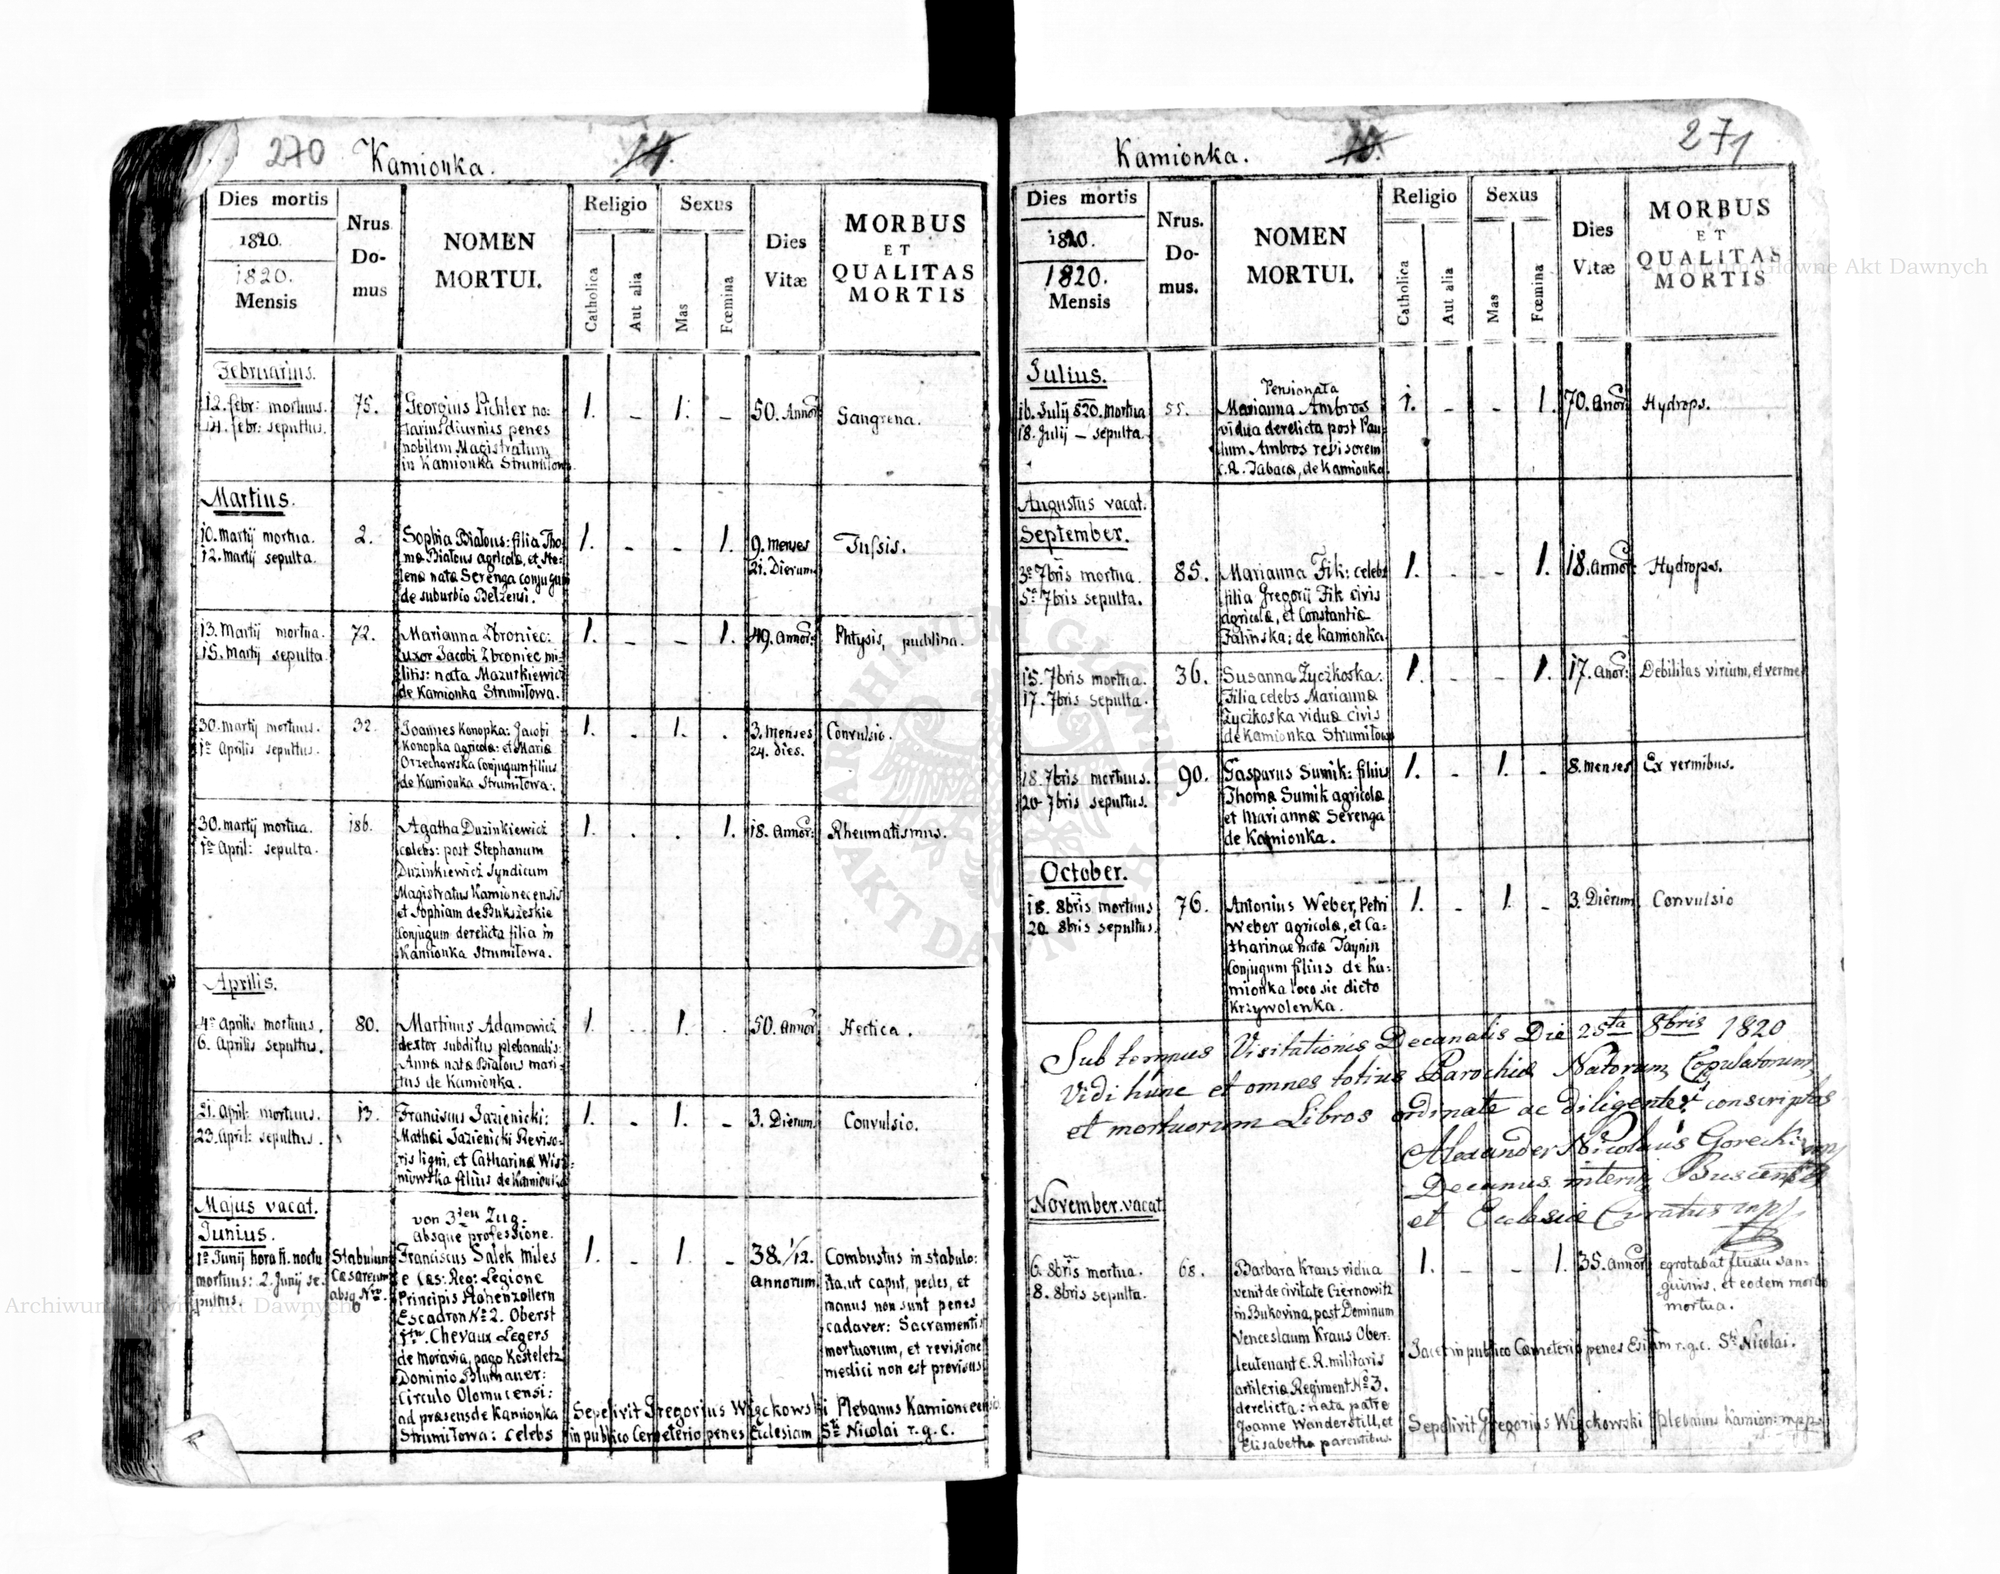 270 Kamionka. 14.
Dies mortis
1820.
1820.
Mensis
Nrus
Do-
mus
NOMEN
MORTUI.
Religio
Catholica
Aut alia
Sexus
Mas
Fœmina
Dies
Vitæ
MORBUS
ET
QUALITAS
MORTIS
Februarius.
12. febr: mortuus. 75. Georgius Pichler no: 1. - 1. - 50. Annor Gangrena.
14. febr: sepultus. tarius diurnus penes
nobilem Magistratum
in Kamionka Strumiłowa
Martius.
10. martij mortua. 2. Sophia Białous: filia Tho- 1. - - 1. 9. menses Tussis.
12. martij sepulta. mæ Białous agricolæ, et He- 21. Dierum
lenæ natæ Serenga conjugum
de suburbio Belzensi.
13. Martij mortua. 72. Marianna Zbroniec: 1. - - 1. 49. annor: Phtysis,
15. martij sepulta uxor Jacobi Zbroniec mi-
litis: nata Mazurkiewicz
de Kamionka Strumiłowa.
30. martij mortuus. 32. Joannes Konopka: Jacobi 1. . 1. . 3. menses Convulsio.
1a Aprilis sepultus. Konopka agricolæ: et Mariæ 24. dies.
Orzechowska Conjugum filius
de Kamionka Strumiłowa.
30. martij mortua. 186. Agatha Duzinkiewicz 1. . . 1. 18. Annor: Rheumatismus.
1a April: sepulta. cælebs: post Stephanum
Duzinkiewicz Syndicum
Magistratus Kamionecensis
et Sophiam de Bukszeskie
Conjugum derelicta filia in
Kamionka Strumiłowa.
Aprilis.
4a Aprilis mortuus. 80. Martinus Adamowicz 1. . 1. . 50. Annor Hectica.
6. Aprilis sepultus. textor subditus plebanalis:
Annæ natæ Białous mari-
tus de Kamionka.
21. April: mortuus. 13. Franciscus Jazienicki: 1. . 1. - 3. Dierum Convulsio.
23. April: sepultus. Mathei Jazienicki Reviso-
ris ligni, et Catharinæ Wisz-
niowska filius de Kamionka
Majus vacat.
Junius. von 3ten Zug.
absque professione.
1a Junij hora 11. noctu Stabulum Franciscus Salek miles 1. - 1. - 38. 1/12. Combustus in stabulo:
mortuus: 2. Junij se- Cæsareum e Cæs: Reg: Legione annorum ita, ut caput, pedes, et
pultus. absq Nro. Principis Hohenzollern manus non sunt penes
Escadron No 2. Oberst cadaver: Sacramentis
1te. Chevaux Legers mortuorum, et revisione
de Moravia, pago Kosteletz medici non est provisus
Dominio Blumauer:
Circulo Olomucensi:
ad præsens de Kamionka Sepelivit Gregorius Więckowski Plebanus Kamionecensis
Strumiłowa: celebs in publico Cemeterio penes Ecclesiam Sti Nicolai r.g.c.
Kamionka. 271
Dies mortis
1820.
1820.
Mensis
Nrus.
Do-
mus.
NOMEN
MORTUI.
Religio
Catholica
Aut alia
Sexus
Mas
Fœmina
Dies
Vitæ
MORBUS
ET
QUALITAS
MORTIS
Julius. Pensionata
16. Julij 820. mortua 55. Marianna Ambros 1. - - 1. 70. anor Hydrops.
18. Julij - sepulta. vidua derelicta post Pau-
lum Ambros revisorem
C.R. Tabacæ, de Kamionka
Augustus vacat.
September.
3a 7bris mortua. 85. Marianna Fik: celebs 1. - - 1. 18. annor: Hydrops.
5a 7bris sepulta. filia Gregorij Fik civis
agricolæ, et Constantiæ
Falinska; de Kamionka.
15. 7bris mortua. 36. Susanna Życzkoska: 1. - - 1. 17. anor: Debilitas virium, et vermes
17. 7bris sepulta. Filia celebs Mariannæ
Życzkoska viduæ civis
de Kamionka Strumiłowa
18. 7bris mortuus. 90. Gasparus Sumik: filius 1. - 1. - 8. menses Ex vermibus.
20 7bris sepultus. Thomæ Sumik agricolæ
et Mariannæ Serenga
de Kamionka.
October.
18. 8bris mortuus 76. Antonius Weber, Petri 1. - 1. - 3. Dierum Convulsio
20. 8bris sepultus. Weber agricolæ, et Ca-
tharinae natæ Taynin
Conjugum filius de Ka-
mionka loco sic dicto
Krzywolenka.
Sub tempus Visitationis Decanalis Die 25ta 8bris 1820
Vidi hunc et omnes totius Parochiæ Natorum, Copulatorum,
et mortuorum Libros ordinate ac diligenter conscriptos
Alexander Nicolaus Gorecki mp
Decanus interim. Buscensis
et Ecclesiæ Curatus mp
November. vacat
6. 8bris mortua. 68. Barbara Kraus vidua 1. - - 1. 35. annor egrotabat fluxu san-
8. 8bris sepulta. venit de civitate Czernowitz guinis, et eodem morbo
in Bukovina, post Dominum mortua.
Venceslaum Kraus Ober-
leutenant C.R. militaris Jacet in publico Cæmeterio penes Eslam r.g.c. Sti Nicolai.
artileriæ Regiment No 3.
derelicta: nata patre
Joanne Wanderstill, et Sepelivit Gregorius Więckowski plebanus Kamion: mpp.
Elisabetha parentibus.
Archiwum Główne Akt Dawnych
Archiwum Główne Akt Dawnych
ARCHIWUM GŁÓWNE AKT DAWNYCH